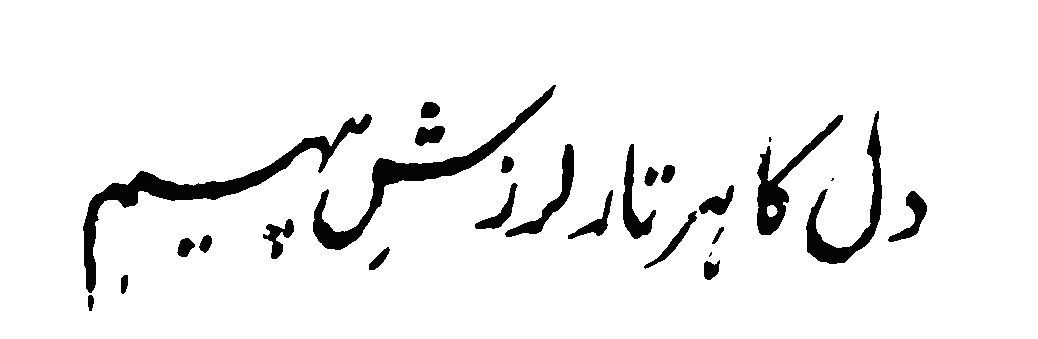 دل کا ہر تار لرزشِ پیہم